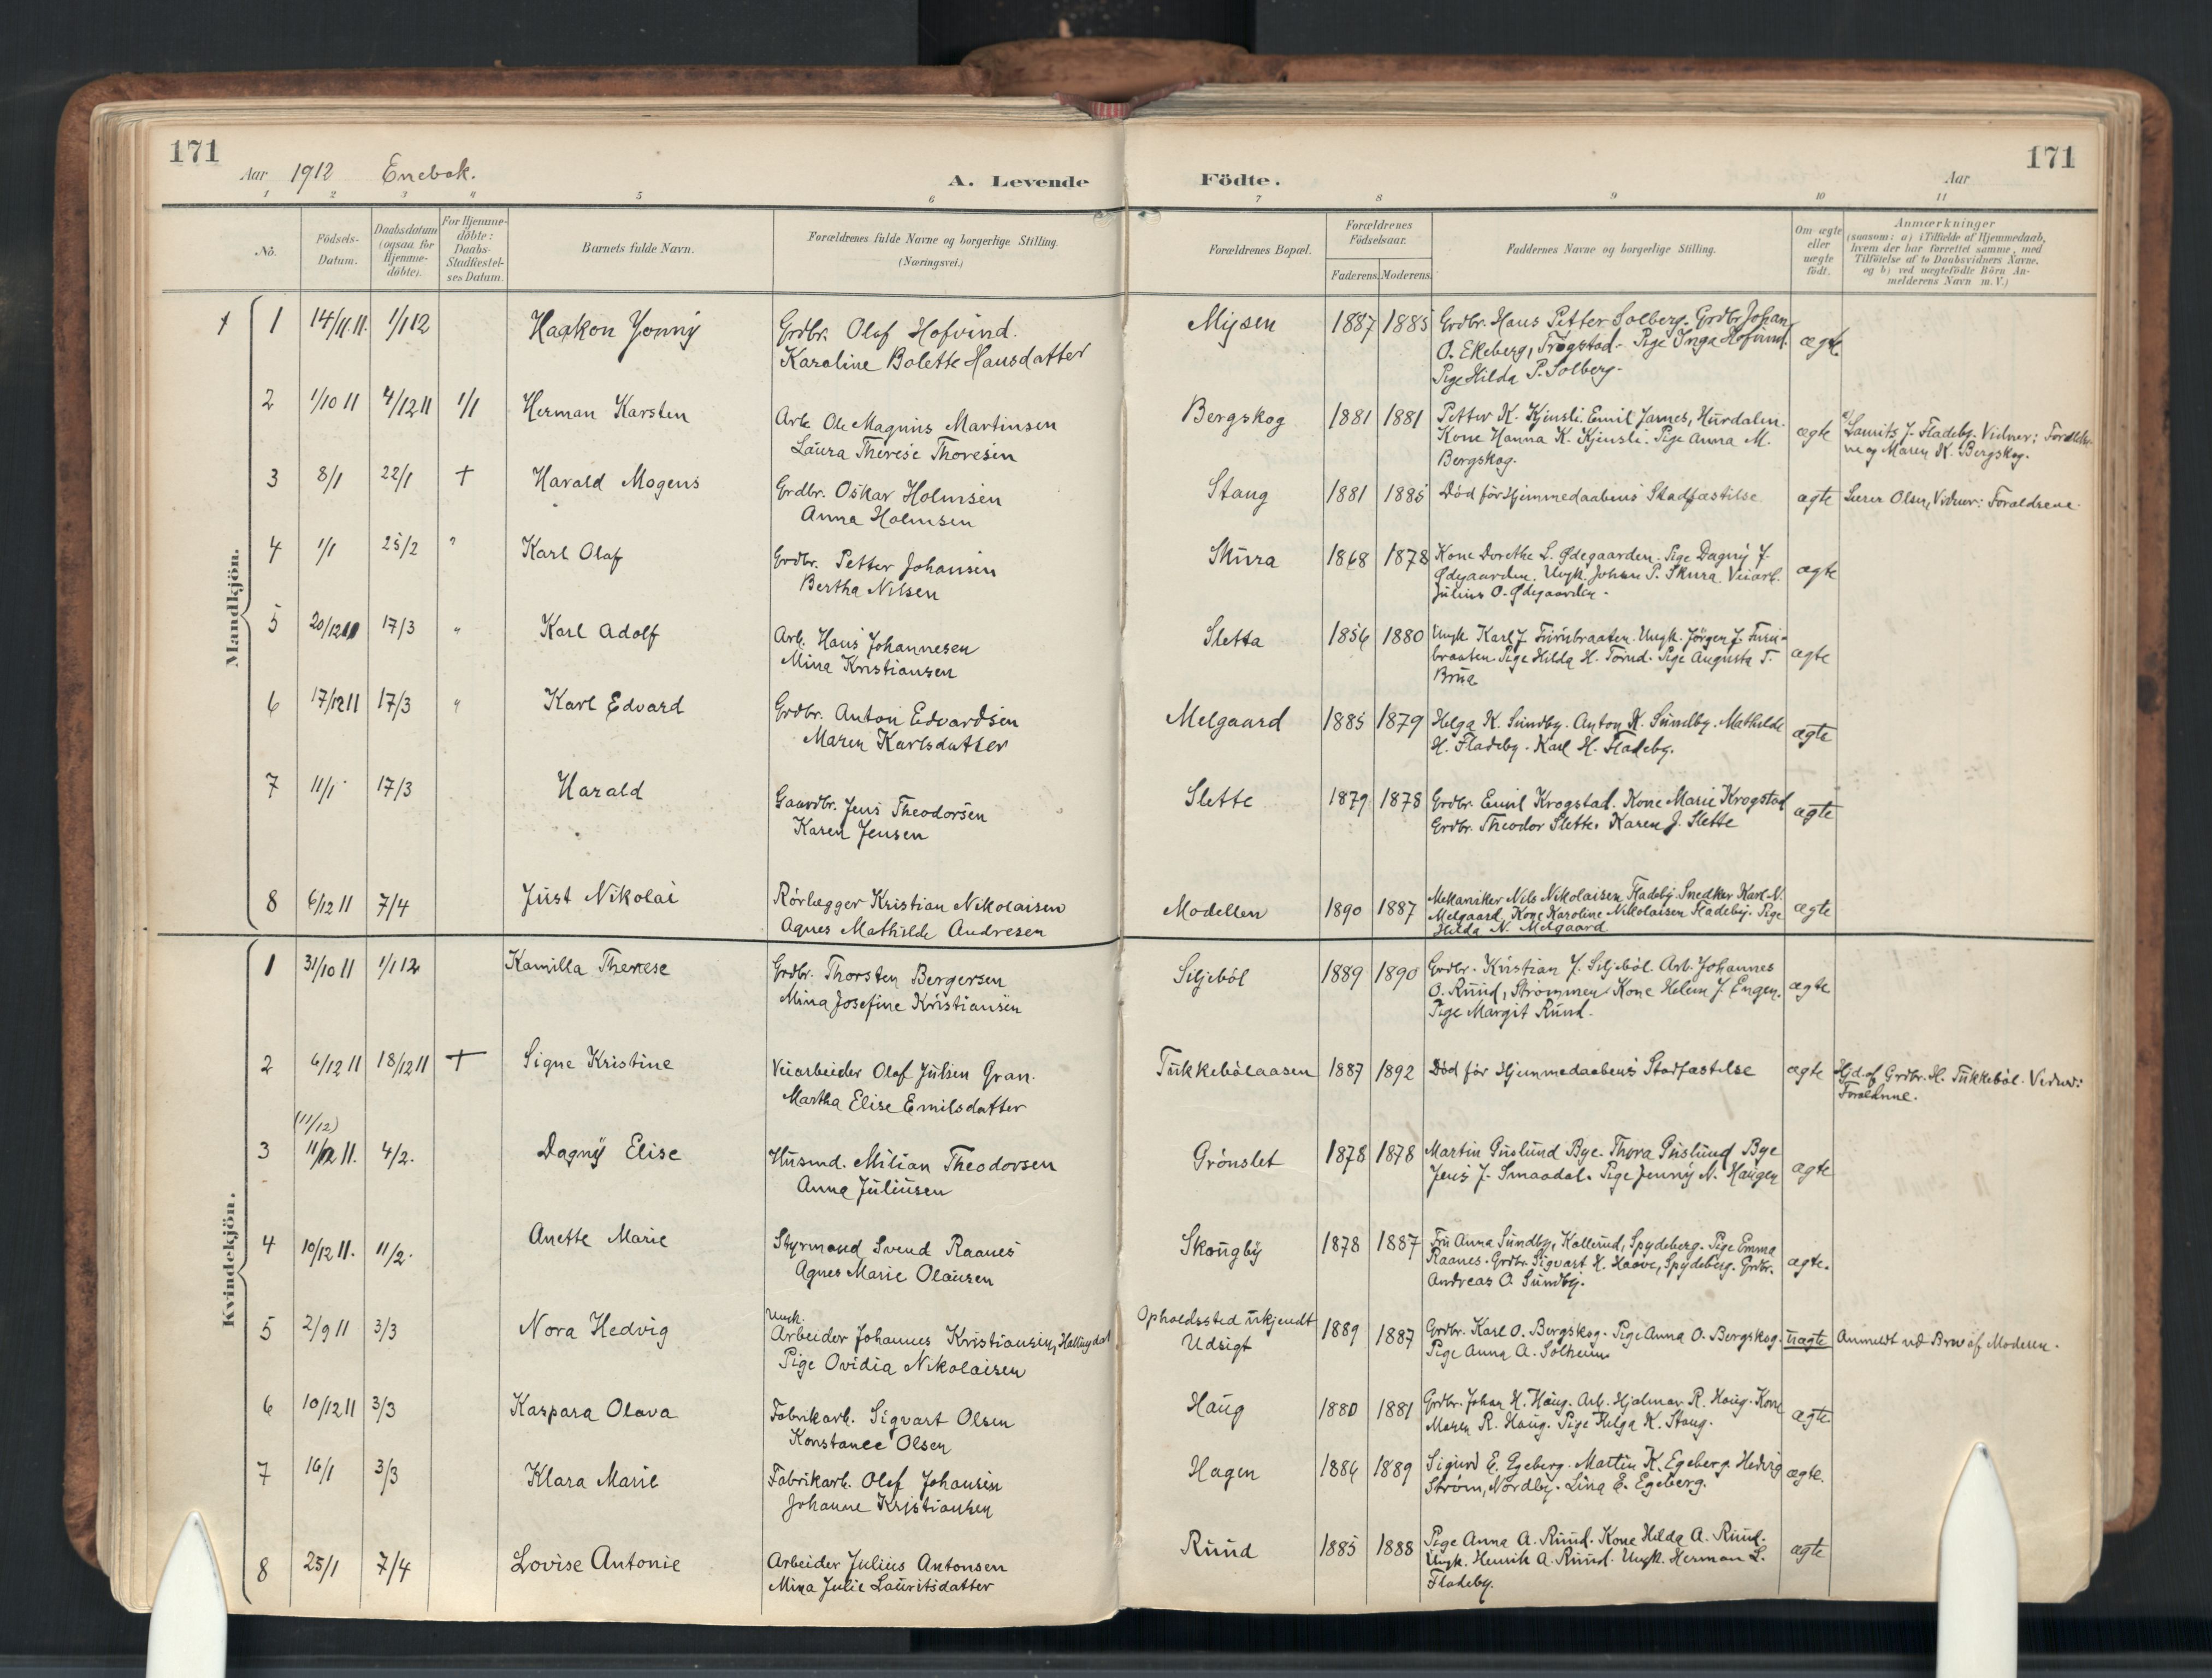 171
171
Aar 1912 Enebak.
A. Levende Födte.
Aar
1 2 3 4 5 6 7 8 9 10 11
No.
Födsels-Datum.
Daabsdatum (ogsaa for Hjemme-döbte).
For Hjemme-döbte: Daabs-Stadfæstel-ses Datum.
Barnets fulde Navn.
Forældrenes fulde Navne og borgerlige Stilling.
(Næringsvei.)
Forældrenes Bopæl.
Forældrenes Födselsaar.
Faderens. Moderens.
Faddernes Navne og borgerlige Stilling.
Om ægte eller uægte født.
Anmærkninger
(saasom: a) i Tilfælde af Hjemmedaab,
hvem der har forrettet samme, med
Tilföielse af to Daabsvidners Navne.
og b) ved uægtefödte Börn An-
melderens Navn m. V.)
Mandkjön.
1 14/11.11. 1/1 12 Haakon Yonny Grdbr. Olaf Hofvind. Mysen 1887 1885 Grdbr. Hans Petter Solberg. Grdbr Johan
Karoline Bolette Hansdatter O. Ekeberg, Trøgstad. Pige Inga Hofvind. ægte
Pige Hilda P. Solberg.
2 1/10 11 4/12 11 1/1 Herman Karsten Arb. Ole Magnus Martinsen Bergskog 1881 1881 Petter K. Kjensli. Emil James, Hurdalen.
Laura Therese Thoresen Kone Hanna K. Kjensli. Pige Anna M. ægte Laurits J. Fladeby. Vidner: Foreldre-
Bergskog. ne og Maren K. Bergskog.
3 8/1 22/1 + Harald Mogens Grdbr. Oskar Holmsen Stang 1881 1885 Död för Hjemmedaabens Stadfæstelse ægte Olsen, Vidner: Forældrene.
Anna Holmsen
4 1/1 25/2 " Karl Olaf Grdbr. Petter Johansen Skura 1868 1878 Kone Dorethe L. Ødegaarden. Pige Dagny J.
Bertha Nilsen Ødegaarden. Ungk. Johan P. Skura. Veiarb. ægte
Julius O. Ødegaarden.
5 20/12 11 17/3 " Karl Adolf Arb. Hans Johannesen Sletta 1856 1880 Ungk Karl J. Furubraaten. Ungk. Jörgen J. Furu-
Mina Kristiansen braaten. Pige Hilda H. Tomd. Pige Augusta T. ægte
Brua
6 17/12 11 17/3 " Karl Edvard Grdbr. Anton Edvardsen Melgaard 1885 1879 Helga K. Sundby. Anton K. Sundby. Mathilde
Maren Karlsdatter H. Fladeby. Karl H. Fladeby. ægte
7 11/1 17/3 Harald Gaardbr. Jens Theodorsen Slette 1879 1878 Grdbr. Emil Krogstad. Kone Marie Krogstad
Karen Jensen Grdbr. Theodor Slette. Karen J. Slette ægte
8 6/12 11 7/4 Just Nikolai Rörlægger Kristian Nikolaisen Modellen 1890 1887 Mekaniker Nils Nikolaisen Fladeby. Snedker Karl N.
Agnes Mathilde Andresen Melgaard. Kone Karoline Nikolaisen Fladeby. Pige ægte
Hilda N. Melgaard
Kvindekjön.
1 31/10 11 1/1 12 Kamilla Therese Grdbr. Thorsten Bergersen Siljeböl 1889 1890 Grdbr. Kristian J. Siljeböl. Arb. Johannes
Mina Josefine Kristiansen O. Ruud, Strömmen. Kone Helene J. Engen. ægte
Pige Margit Ruud.
2 6/12 11 18/12 11 + Signe Kristine Veiarbeider Olaf Julsen Gran. Tukkebölaasen 1887 1892 Död för Hjemmedaabens Stadfæstelse ægte Hjd. af Grdbr. H. Tukkeböl. Vidner:
Martha Elise Emilsdatter Forældrene.
(11/12)
3 11/12 11. 4/2. Dagny Elise Husmd. Milian Theodorsen Grönslet 1878 1878 Martin Guslund Bye. Thora Guslund Bye
Anna Juliusen Jens J. Smaadal. Pige Jenny N. Haugen ægte
4 10/12 11. 11/2. Anette Marie Styrmand Svend Raanes Skougby 1878 1887 Fru Anna Sundby, Kallerud, Spydeberg. Pige Emma
Agnes Marie Olausen Raanes. Grdbr. Sigvart H. Haave, Spydeberg. Grdbr. ægte.
Andreas O. Sundby.
5 2/9 11 3/3 Nora Hedvig Ungk. Arbeider Johannes Kristiansen, Hallingdal Opholdssted ukjendt 1889 1887 Grdbr. Karl O. Bergskog. Pige Anna O. Bergskog. uægte Anmeldt ved Brev af Moderen.
Pige Ovidia Nikolaisen Udsigt Pige Anna A. Solheim
6 10/12 11 3/3 Kaspara Olava Fabrikarb. Sigvart Olsen Haug 1880 1881 Grdbr. Johan H. Haug. Arb. Hjalmar R. Haug. Kone
Konstance Olsen Maren R. Haug. Pige Helga K. Stang. ægte
7 16/1 3/3 Klara Marie Fabrikarb. Olaf Johansen Hagen 1886 1889 Sigurd E. Egeberg. Martin K. Egeberg. Hedvig
Johanne Kristiansen Ström, Nordby. Lina E. Egeberg. ægte.
8 25/1 7/4 Lovise Antonie Arbeider Julius Antonsen Ruud 1885 1888 Pige Anna A. Ruud. Kone Hilda A. Ruud.
Mina Julie Lauritsdatter Ungk. Henrik A. Ruud. Ungk. Herman L. ægte
Fladeby.